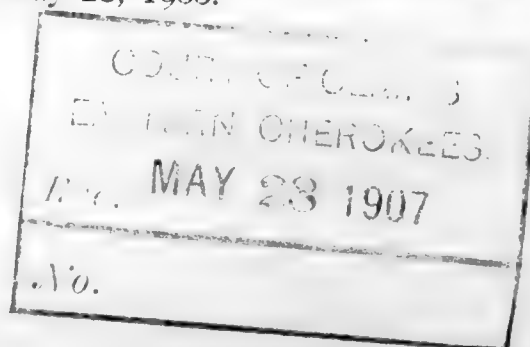 1906.
COURT OF CLAIMS
EASTERN CHEROKEES.
Rec. MAY 28 1907
No.